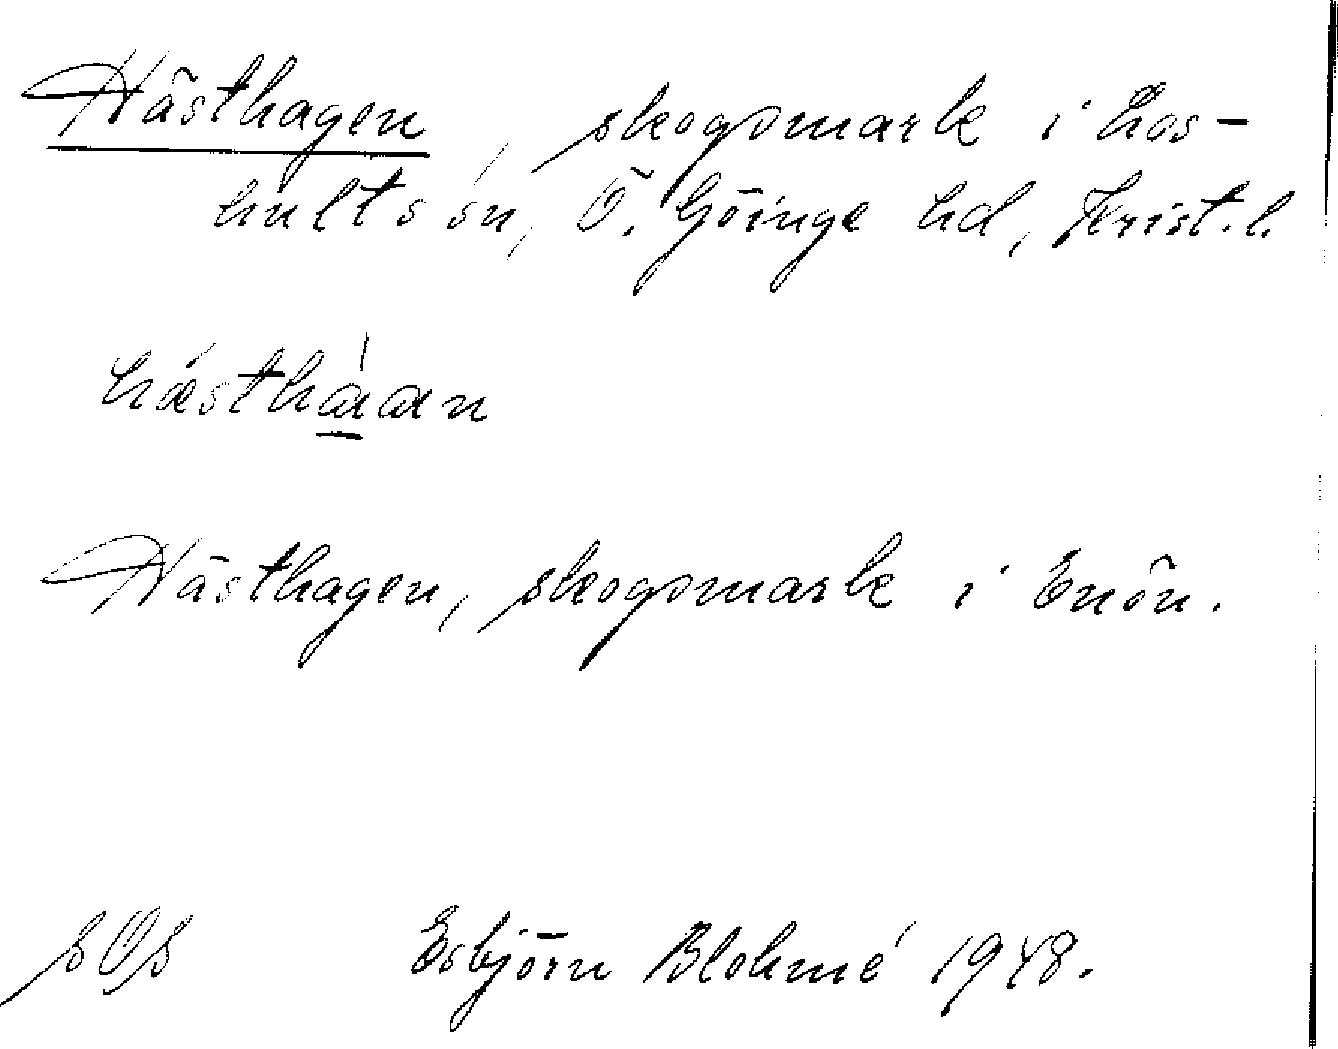 Hästhagen, skogsmark i Los-
hults sn, Ö. Göinge hd, Krist. l.
hǽsthàan
Hästhagen, skogsmark i Enön.
sOs Esbjörn Blohmé 1948.